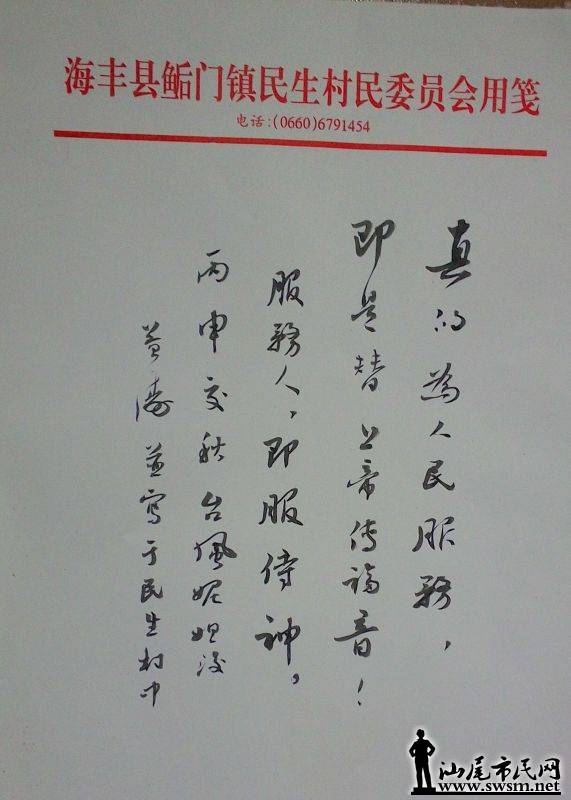 海丰县鲘门镇民生村民委员会用笺
电话:(0660)6791454
真的為人民服務，
即是替上帝傳福音！
服務人，即服侍神。
丙申交秋台風妮妲後
黄濤並寫于民生村中
汕尾市民网
www.swsm.net